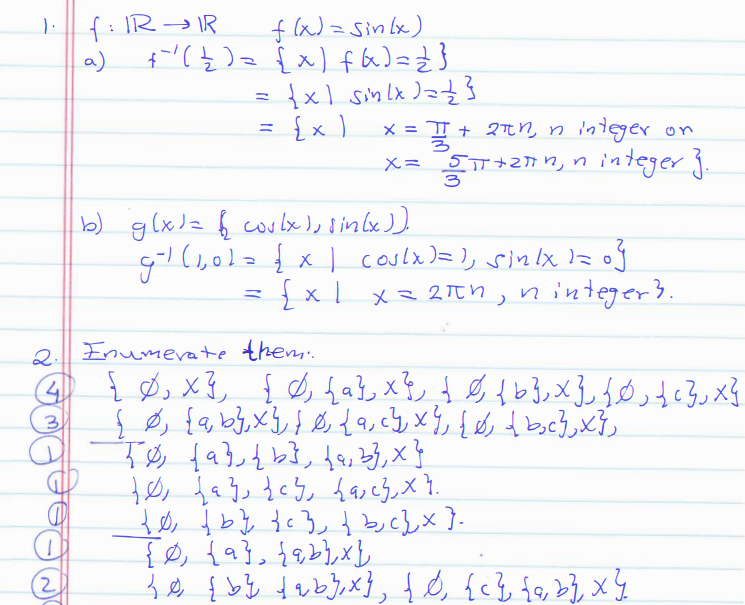 1. f : ℝ → ℝ f(x) = sin(x)
a) f⁻¹(1/2) = { x | f(x) = 1/2 }
= { x | sin(x) = 1/2 }
= { x | x = π/3 + 2πn, n integer or
x = 5/3 π + 2πn, n integer }.
b) g(x) = ( cos(x), sin(x) ).
g⁻¹(1,0) = { x | cos(x) = 1, sin(x) = 0 }
= { x | x = 2πn, n integer }.
2. Enumerate them:
4 { ∅, X }, { ∅, {a}, X }, { ∅, {b}, X }, { ∅, {c}, X }
3 { ∅, {a,b}, X }, { ∅, {a,c}, X }, { ∅, {b,c}, X },
1 { ∅, {a}, {b}, {a,b}, X }
1 { ∅, {a}, {c}, {a,c}, X }.
1 { ∅, {b}, {c}, {b,c}, X }.
1 { ∅, {a}, {a,b}, X },
2 { ∅, {b}, {a,b}, X }, { ∅, {c}, {a,b}, X }.